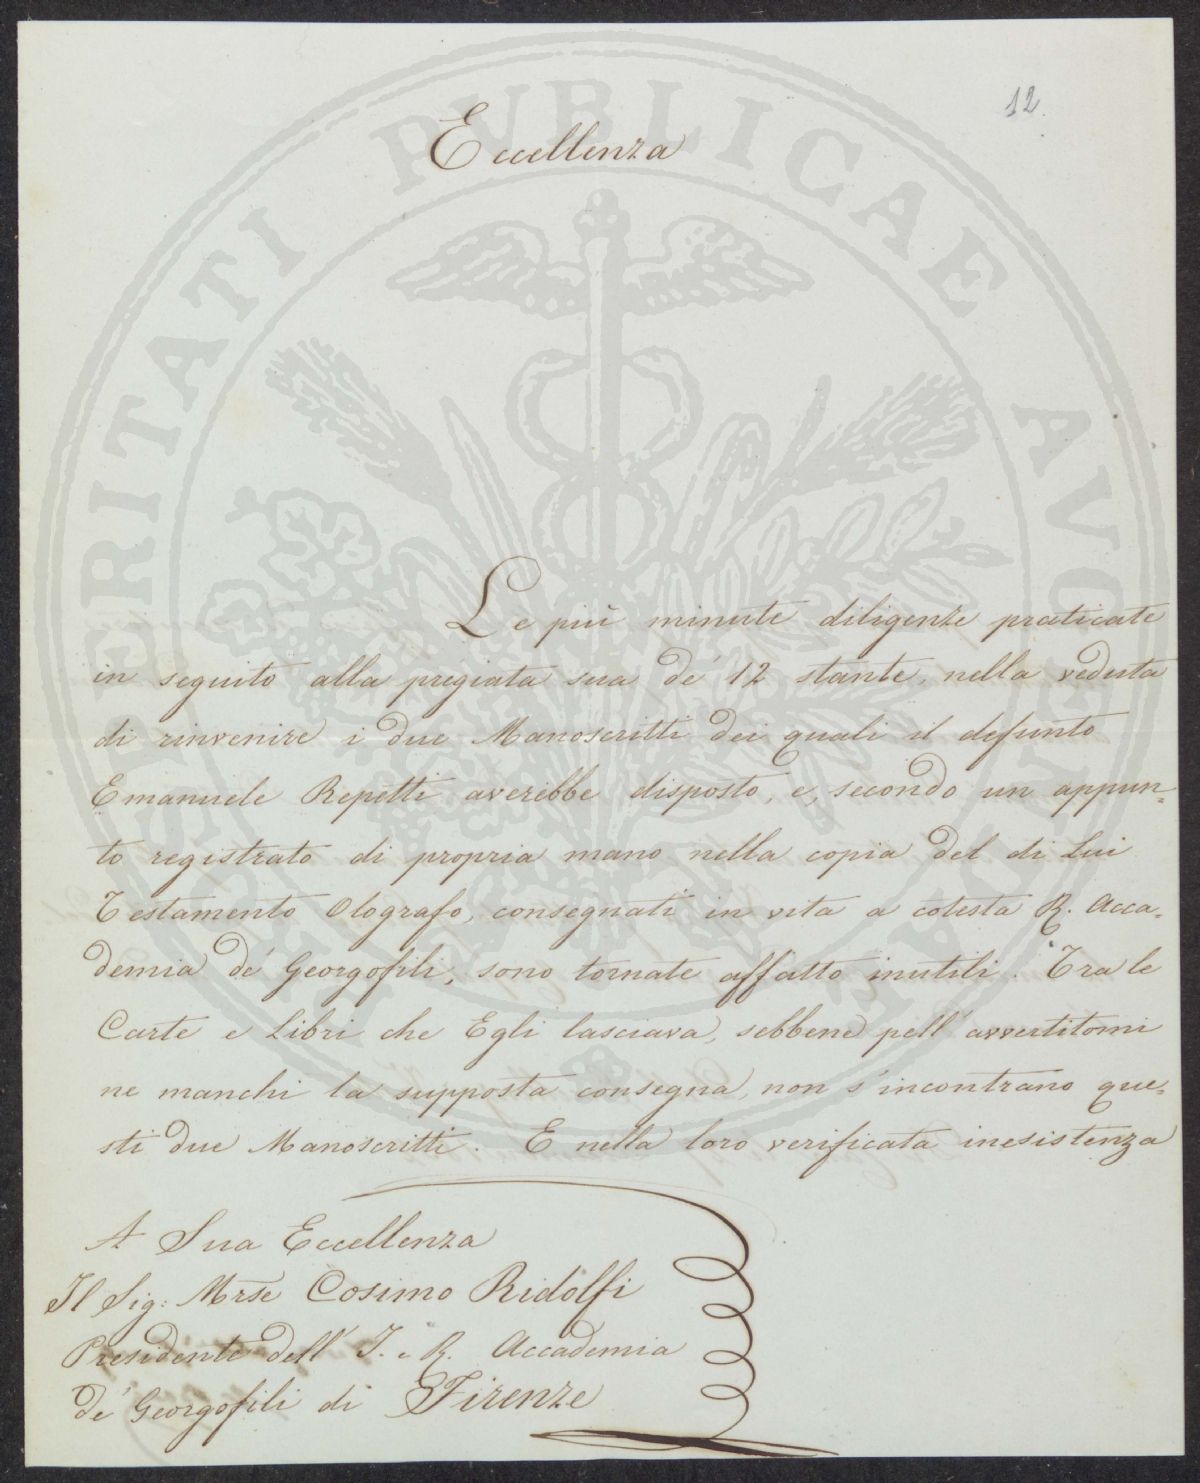 12.
Eccellenza
Le più minute diligenze praticate
in seguito alla pregiata sua de' 12 stante, nella veduta
di rinvenire i due Manoscritti dei quali il defunto
Emanuele Repetti averebbe disposto, e, secondo un appun=
to registrato di propria mano nella copia del di Lui
Testamento Olografo, consegnati in vita a cotesta R. Acca=
demia de' Georgofili, sono tornate affatto inutili. Tra le
Carte e Libri che Egli lasciava, sebbene pell' avvertitomi
ne manchi la supposta consegna, non s'incontrano que=
sti due Manoscritti. E nella loro verificata inesistenza
A Sua Eccellenza
Il Sig: Mrse Cosimo Ridolfi
Presidente dell' I. e R. Accademia
de' Georgofili di Firenze
PROSPERITATI PVBLICAE AVGENDAE